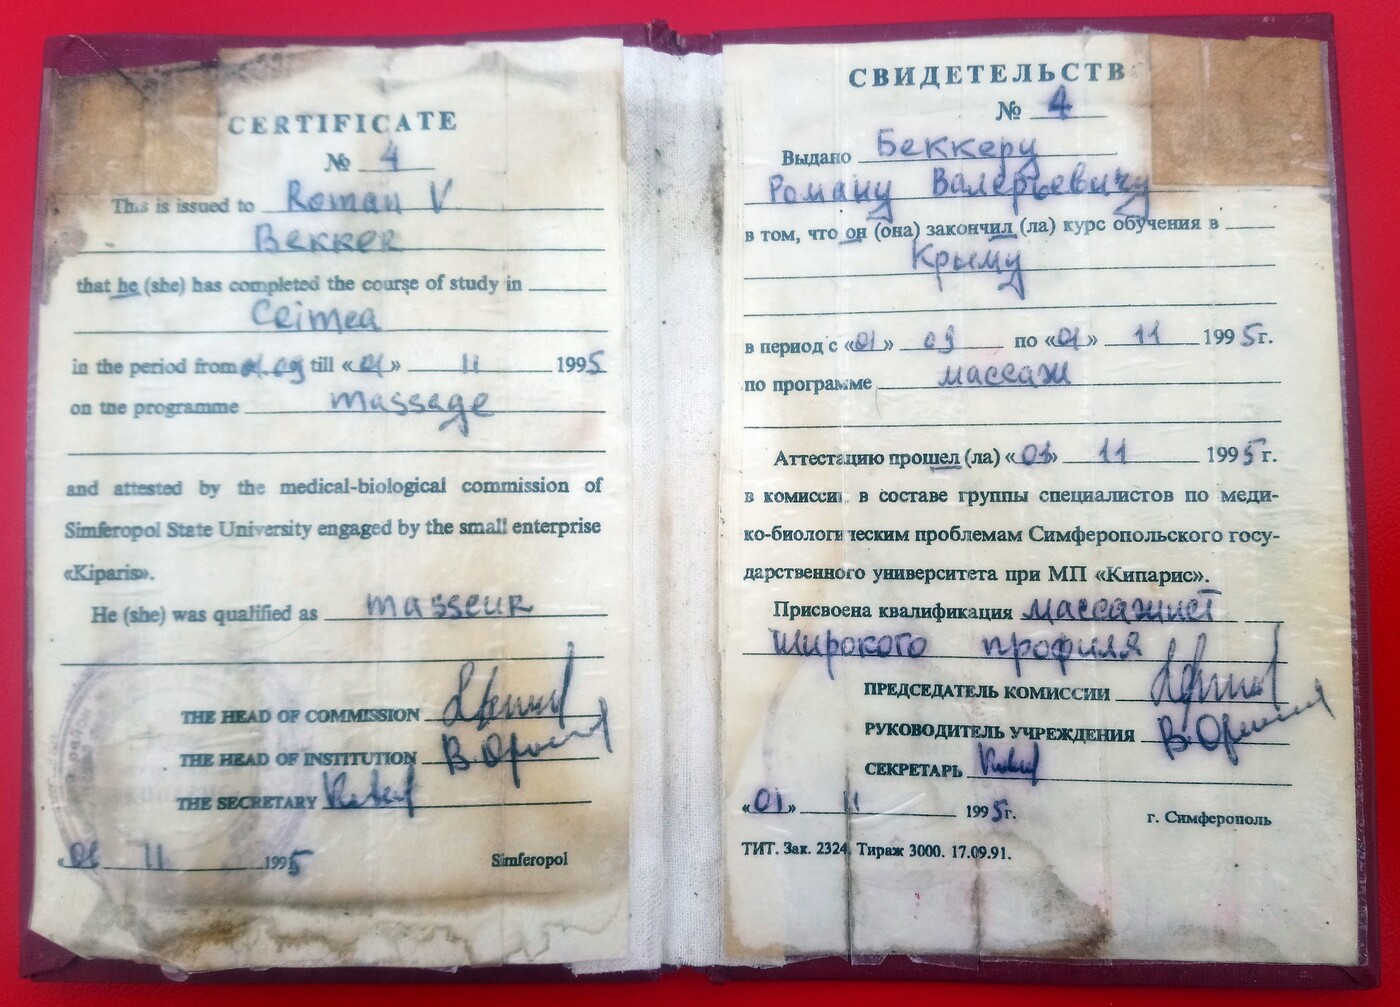 CERTIFICATE
№ 4
This is issued to Roman V
Bekker
that he (she) has completed the course of study in
Crimea
in the period from 01.09 till «01» 11 1995
on the programme massage
and attested by the medical-biological commission of
Simferopol State University engaged by the small enterprise
«Kiparis».
He (she) was qualified as masseur
THE HEAD OF COMMISSION
THE HEAD OF INSTITUTION
THE SECRETARY
«01» 11 1995 Simferopol
СВИДЕТЕЛЬСТВ
№ 4
Выдано Беккеру
Роману Валерьевичу
в том, что он (она) закончил (ла) курс обучения в
Крыму
в период с «01» 09 по «01» 11 1995г.
по программе массаж
Аттестацию прошел (ла) «01» 11 1995г.
в комиссии в составе группы специалистов по меди-
ко-биологическим проблемам Симферопольского госу-
дарственного университета при МП «Кипарис».
Присвоена квалификация массажист
широкого профиля
ПРЕДСЕДАТЕЛЬ КОМИССИИ
РУКОВОДИТЕЛЬ УЧРЕЖДЕНИЯ
СЕКРЕТАРЬ
«01» 11 1995г. г. Симферополь
ТИТ. Зак. 2324 Тираж 3000. 17.09.91.